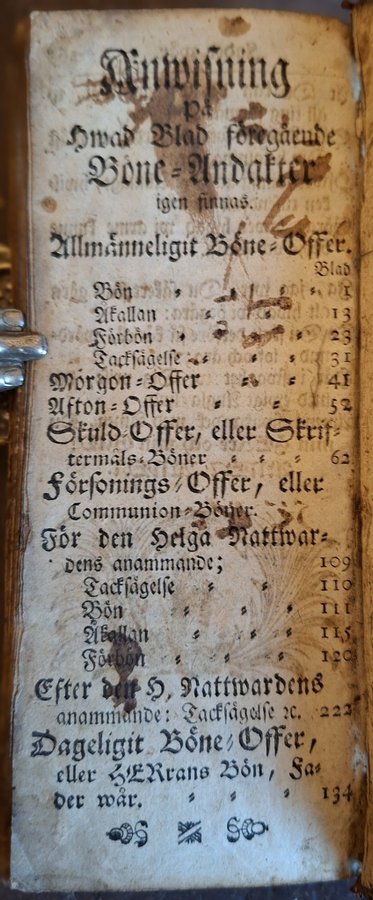 Anwisning
på
Hwad Blad föregående
Böne-Andakter
igen finnas.
Allmänneligit Böne-Offer.
Blad
Bön 1
Åkallan 13
Förbön 23
Tacksägelse 31
Morgon-Offer 41
Afton-Offer 52
Skuld-Offer, eller Skrif-
termåls-Böner 62
Försonings-Offer, eller
Communion-Böner.
För den Helga Nattwar-
dens anammande; 109
Tacksägelse 110
Bön 111
Åkallan 115
Förbön 120
Efter den H. Nattwardens
anammande: Tacksägelse ꝛc. 222
Dageligit Böne-Offer,
eller HERrans Bön, Fa-
der wår. 134